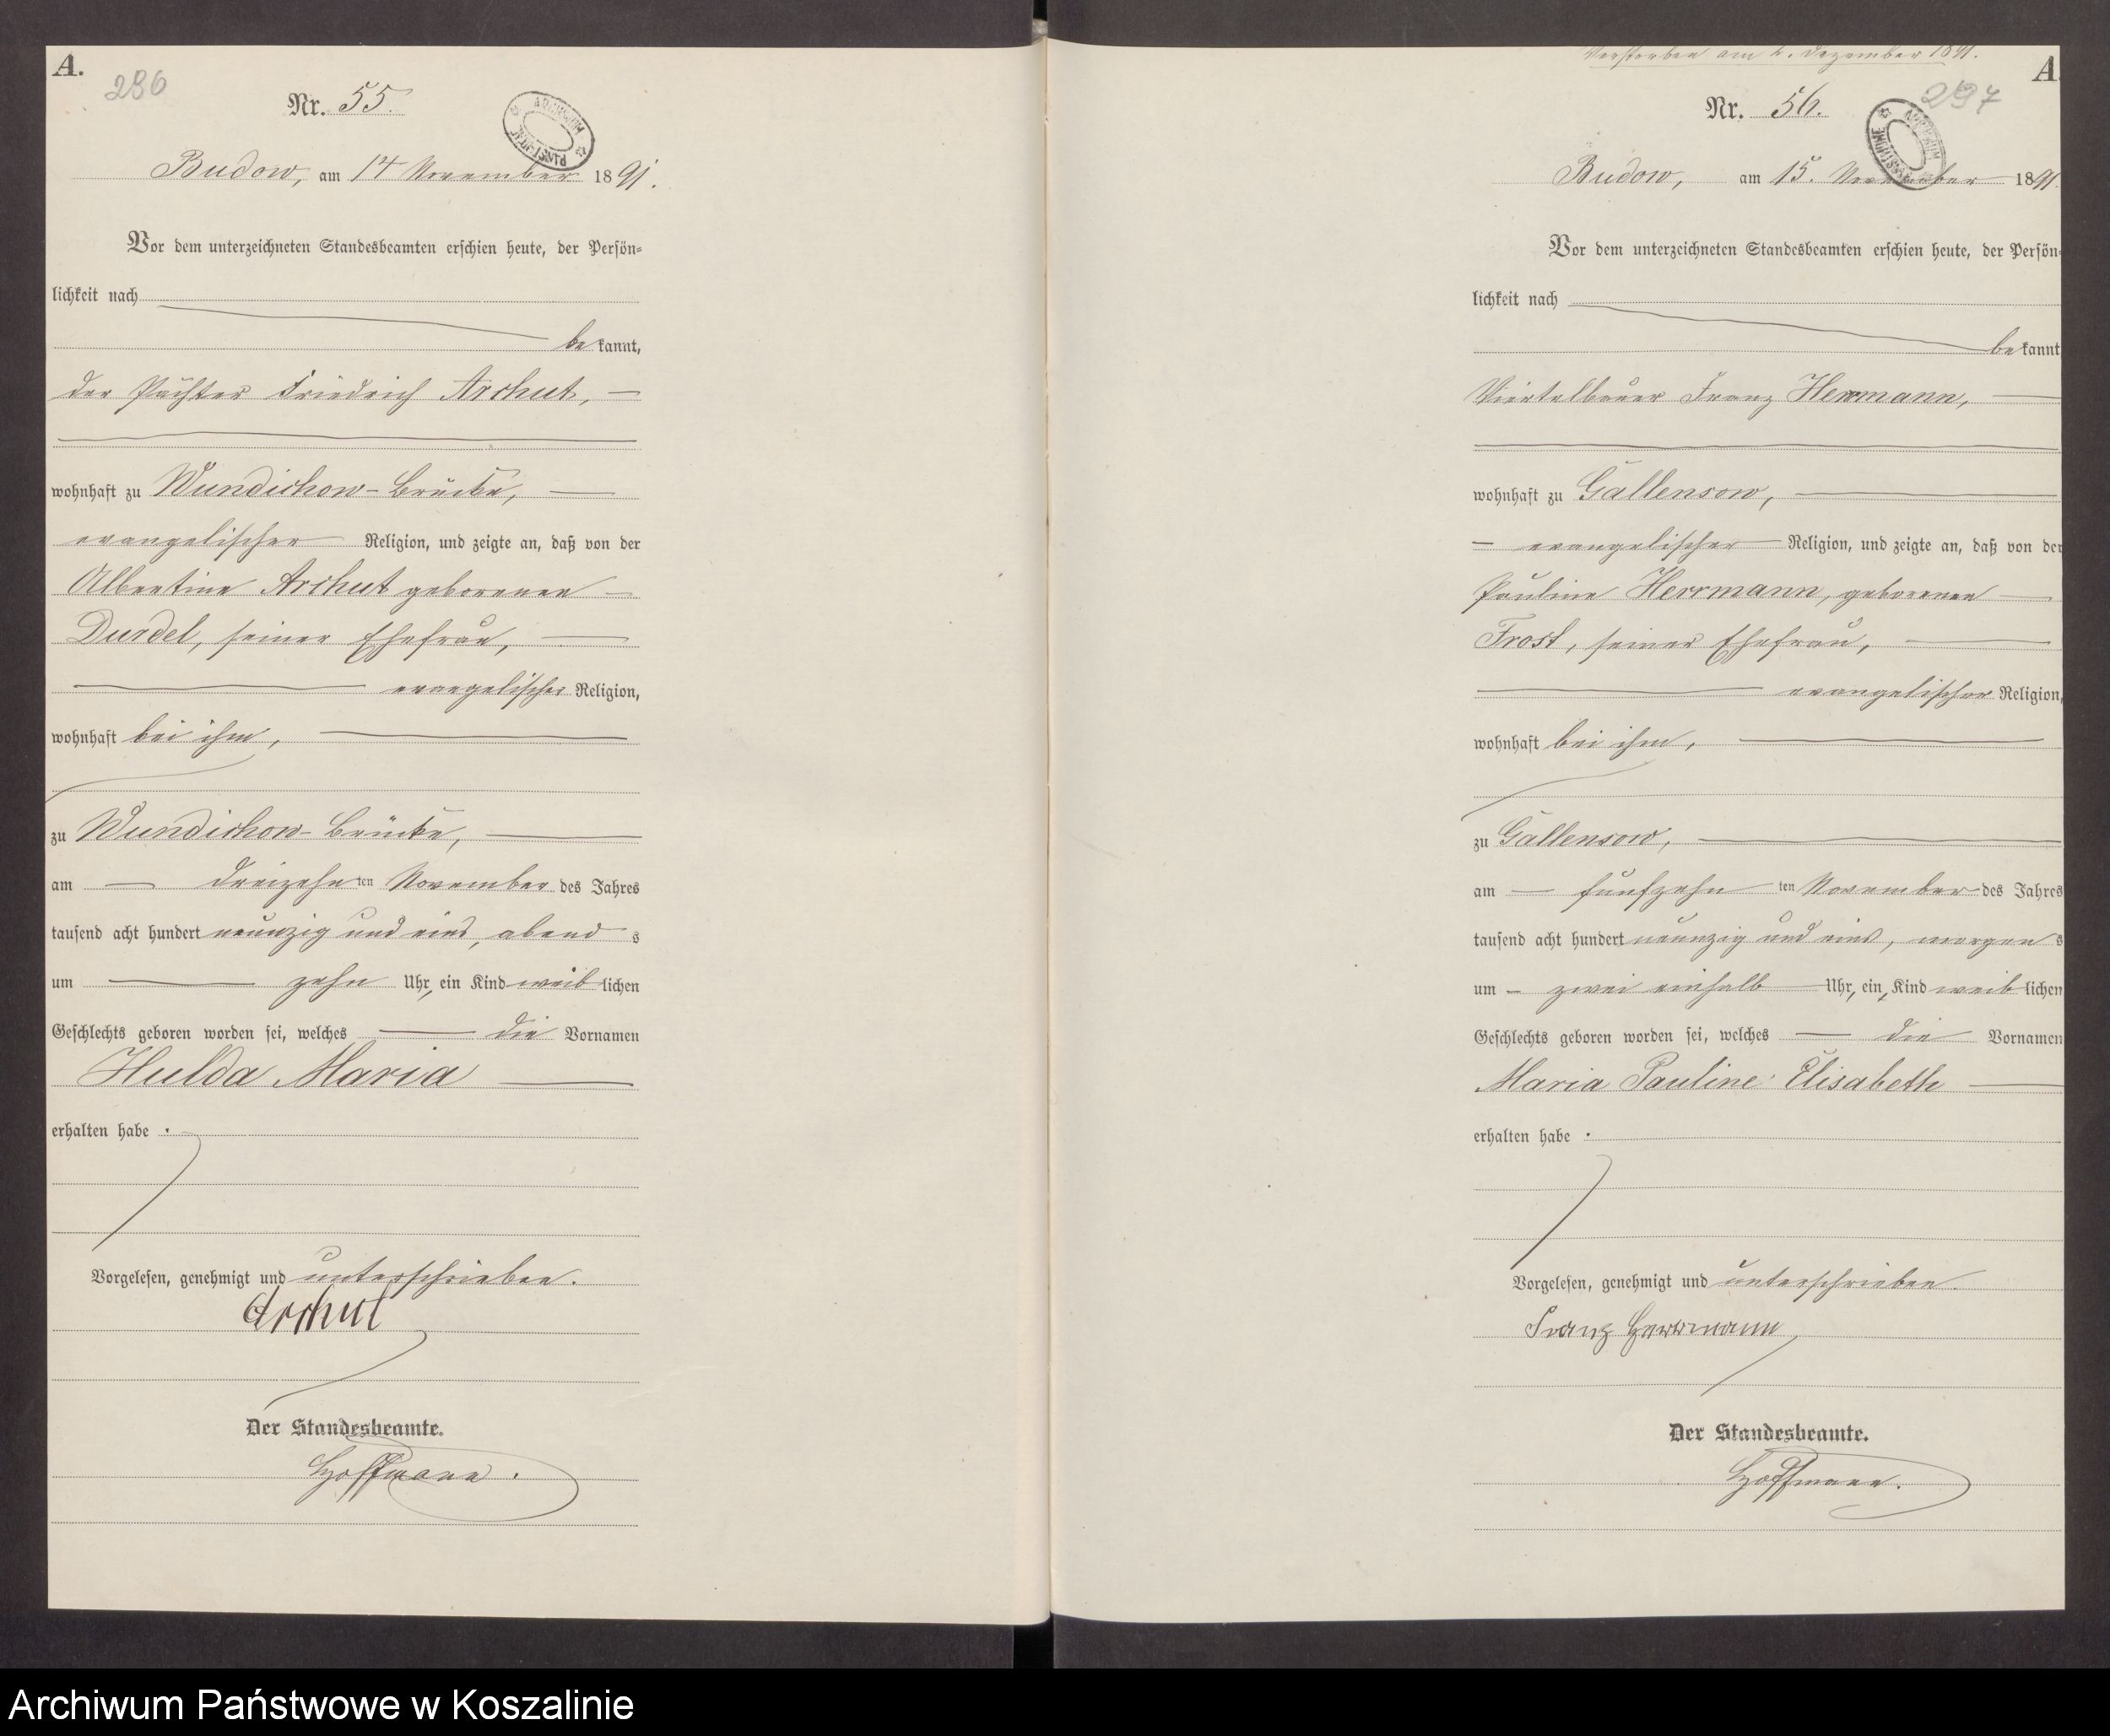 A.
286
Nr. 55.
ARCHIWUM PAŃSTWOWE
Budow, am 14 November 1891.
Vor dem unterzeichneten Standesbeamten erschien heute, der Persön-
lichkeit nach
bekannt,
der Pächter Friedrich Archut,
wohnhaft zu Wundichow-Brücke,
evangelischer Religion, und zeigte an, daß von der
Albertine Archut geborenen
Durdel, seiner Ehefrau,
evangelischer Religion,
wohnhaft bei ihm,
zu Wundichow-Brücke,
am dreizehnten November des Jahres
tausend acht hundert neunzig und eins, abends
um zehn Uhr, ein Kind weiblichen
Geschlechts geboren worden sei, welches die Vornamen
Hulda Maria
erhalten habe.
Vorgelesen, genehmigt und unterschrieben.
Archut
Der Standesbeamte.
Hoffmann.
Verstorben am 2. Dezember 1891.
A
297
Nr. 56.
ARCHIWUM PAŃSTWOWE
Budow, am 15. November 1891
Vor dem unterzeichneten Standesbeamten erschien heute, der Persön-
lichkeit nach
bekannt
Viertelbauer Franz Herrmann,
wohnhaft zu Gallensow,
evangelischer Religion, und zeigte an, daß von der
Pauline Herrmann, geborenen
Frost, seiner Ehefrau,
evangelischer Religion,
wohnhaft bei ihm,
zu Gallensow,
am fünfzehnten November des Jahres
tausend acht hundert neunzig und eins, morgens
um zwei einhalb Uhr, ein Kind weiblichen
Geschlechts geboren worden sei, welches die Vornamen
Maria Pauline Elisabeth
erhalten habe.
Vorgelesen, genehmigt und unterschrieben.
Franz Herrmann
Der Standesbeamte.
Hoffmann.
Archiwum Państwowe w Koszalinie